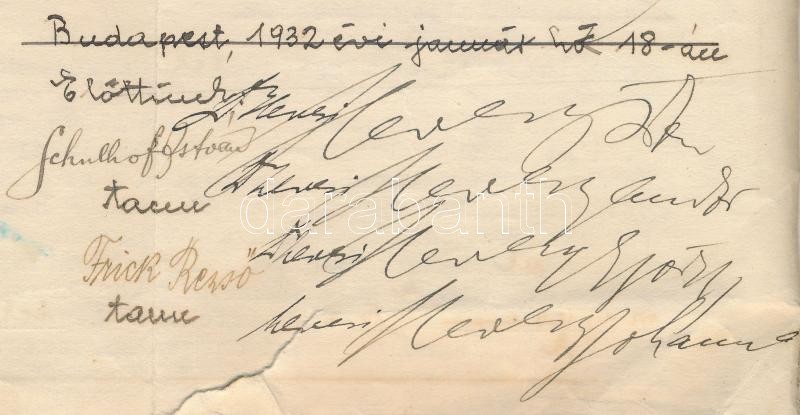 Budapest, 1932 évi január hó 18-án
Előttünk:
Schulhof István
tanu
Frick Rezső
tanu
hevesi Hevesy
hevesi Hevesy Sándor
hevesi Hevesy György
hevesi Hevesy Johanna
darabanth